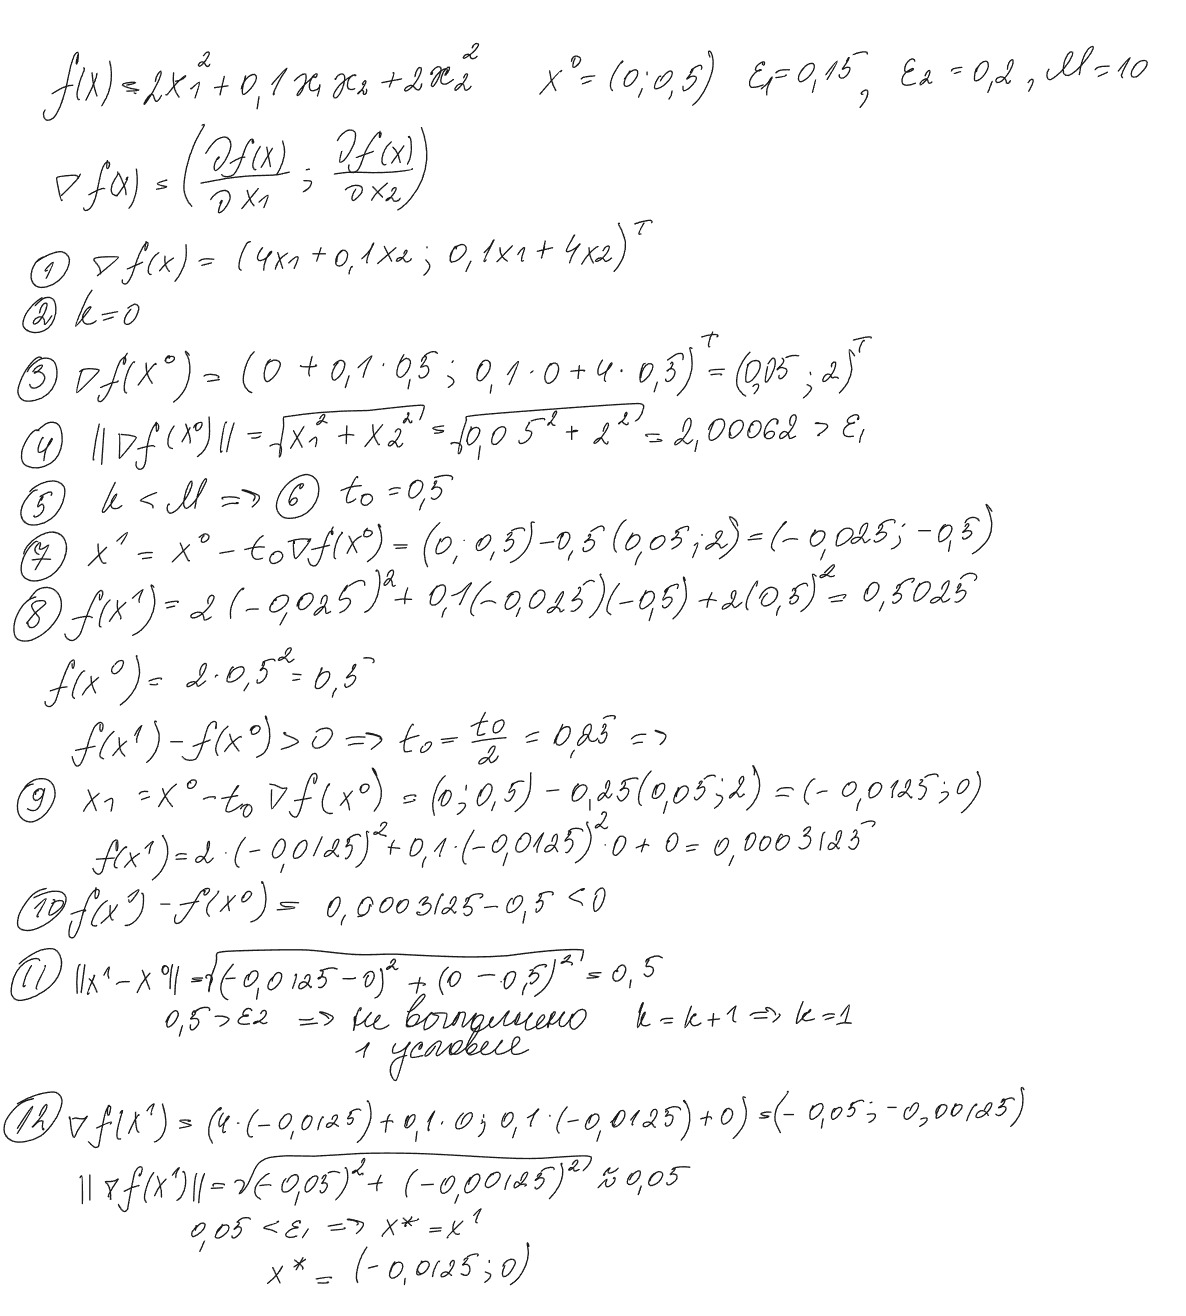 f(x) = 2x₁² + 0,1x₁x₂ + 2x₂² x⁰ = (0; 0,5) ε₁ = 0,15, ε₂ = 0,2, M = 10
∇f(x) = (∂f(x)/∂x₁ ; ∂f(x)/∂x₂)
① ∇f(x) = (4x₁ + 0,1x₂; 0,1x₁ + 4x₂)ᵀ
② k = 0
③ ∇f(x⁰) = (0 + 0,1·0,5; 0,1·0 + 4·0,5)ᵀ = (0,05; 2)ᵀ
④ ||∇f(x⁰)|| = √(x₁² + x₂²) = √(0,05² + 2²) = 2,00062 > ε₁
⑤ k < M => ⑥ t₀ = 0,5
⑦ x¹ = x⁰ - t₀∇f(x⁰) = (0; 0,5) - 0,5(0,05; 2) = (-0,025; -0,5)
⑧ f(x¹) = 2(-0,025)² + 0,1(-0,025)(-0,5) + 2(0,5)² = 0,5025
f(x⁰) = 2·0,5² = 0,5
f(x¹) - f(x⁰) > 0 => t₀ = t₀/2 = 0,25 =>
⑨ x₁ = x⁰ - t₀∇f(x⁰) = (0; 0,5) - 0,25(0,05; 2) = (-0,0125; 0)
f(x¹) = 2·(-0,0125)² + 0,1·(-0,0125)²·0 + 0 = 0,0003125
⑩ f(x¹) - f(x⁰) = 0,0003125 - 0,5 < 0
⑪ ||x¹ - x⁰|| = √((-0,0125 - 0)² + (0 - 0,5)²) = 0,5
0,5 > ε2 => не выполнено k = k + 1 => k = 1
1 условие
⑫ ∇f(x¹) = (4·(-0,0125) + 0,1·0; 0,1·(-0,0125) + 0) = (-0,05; -0,00125)
||∇f(x¹)|| = √((-0,05)² + (-0,00125)²) ≈ 0,05
0,05 < ε₁ => x* = x¹
x* = (-0,0125; 0)